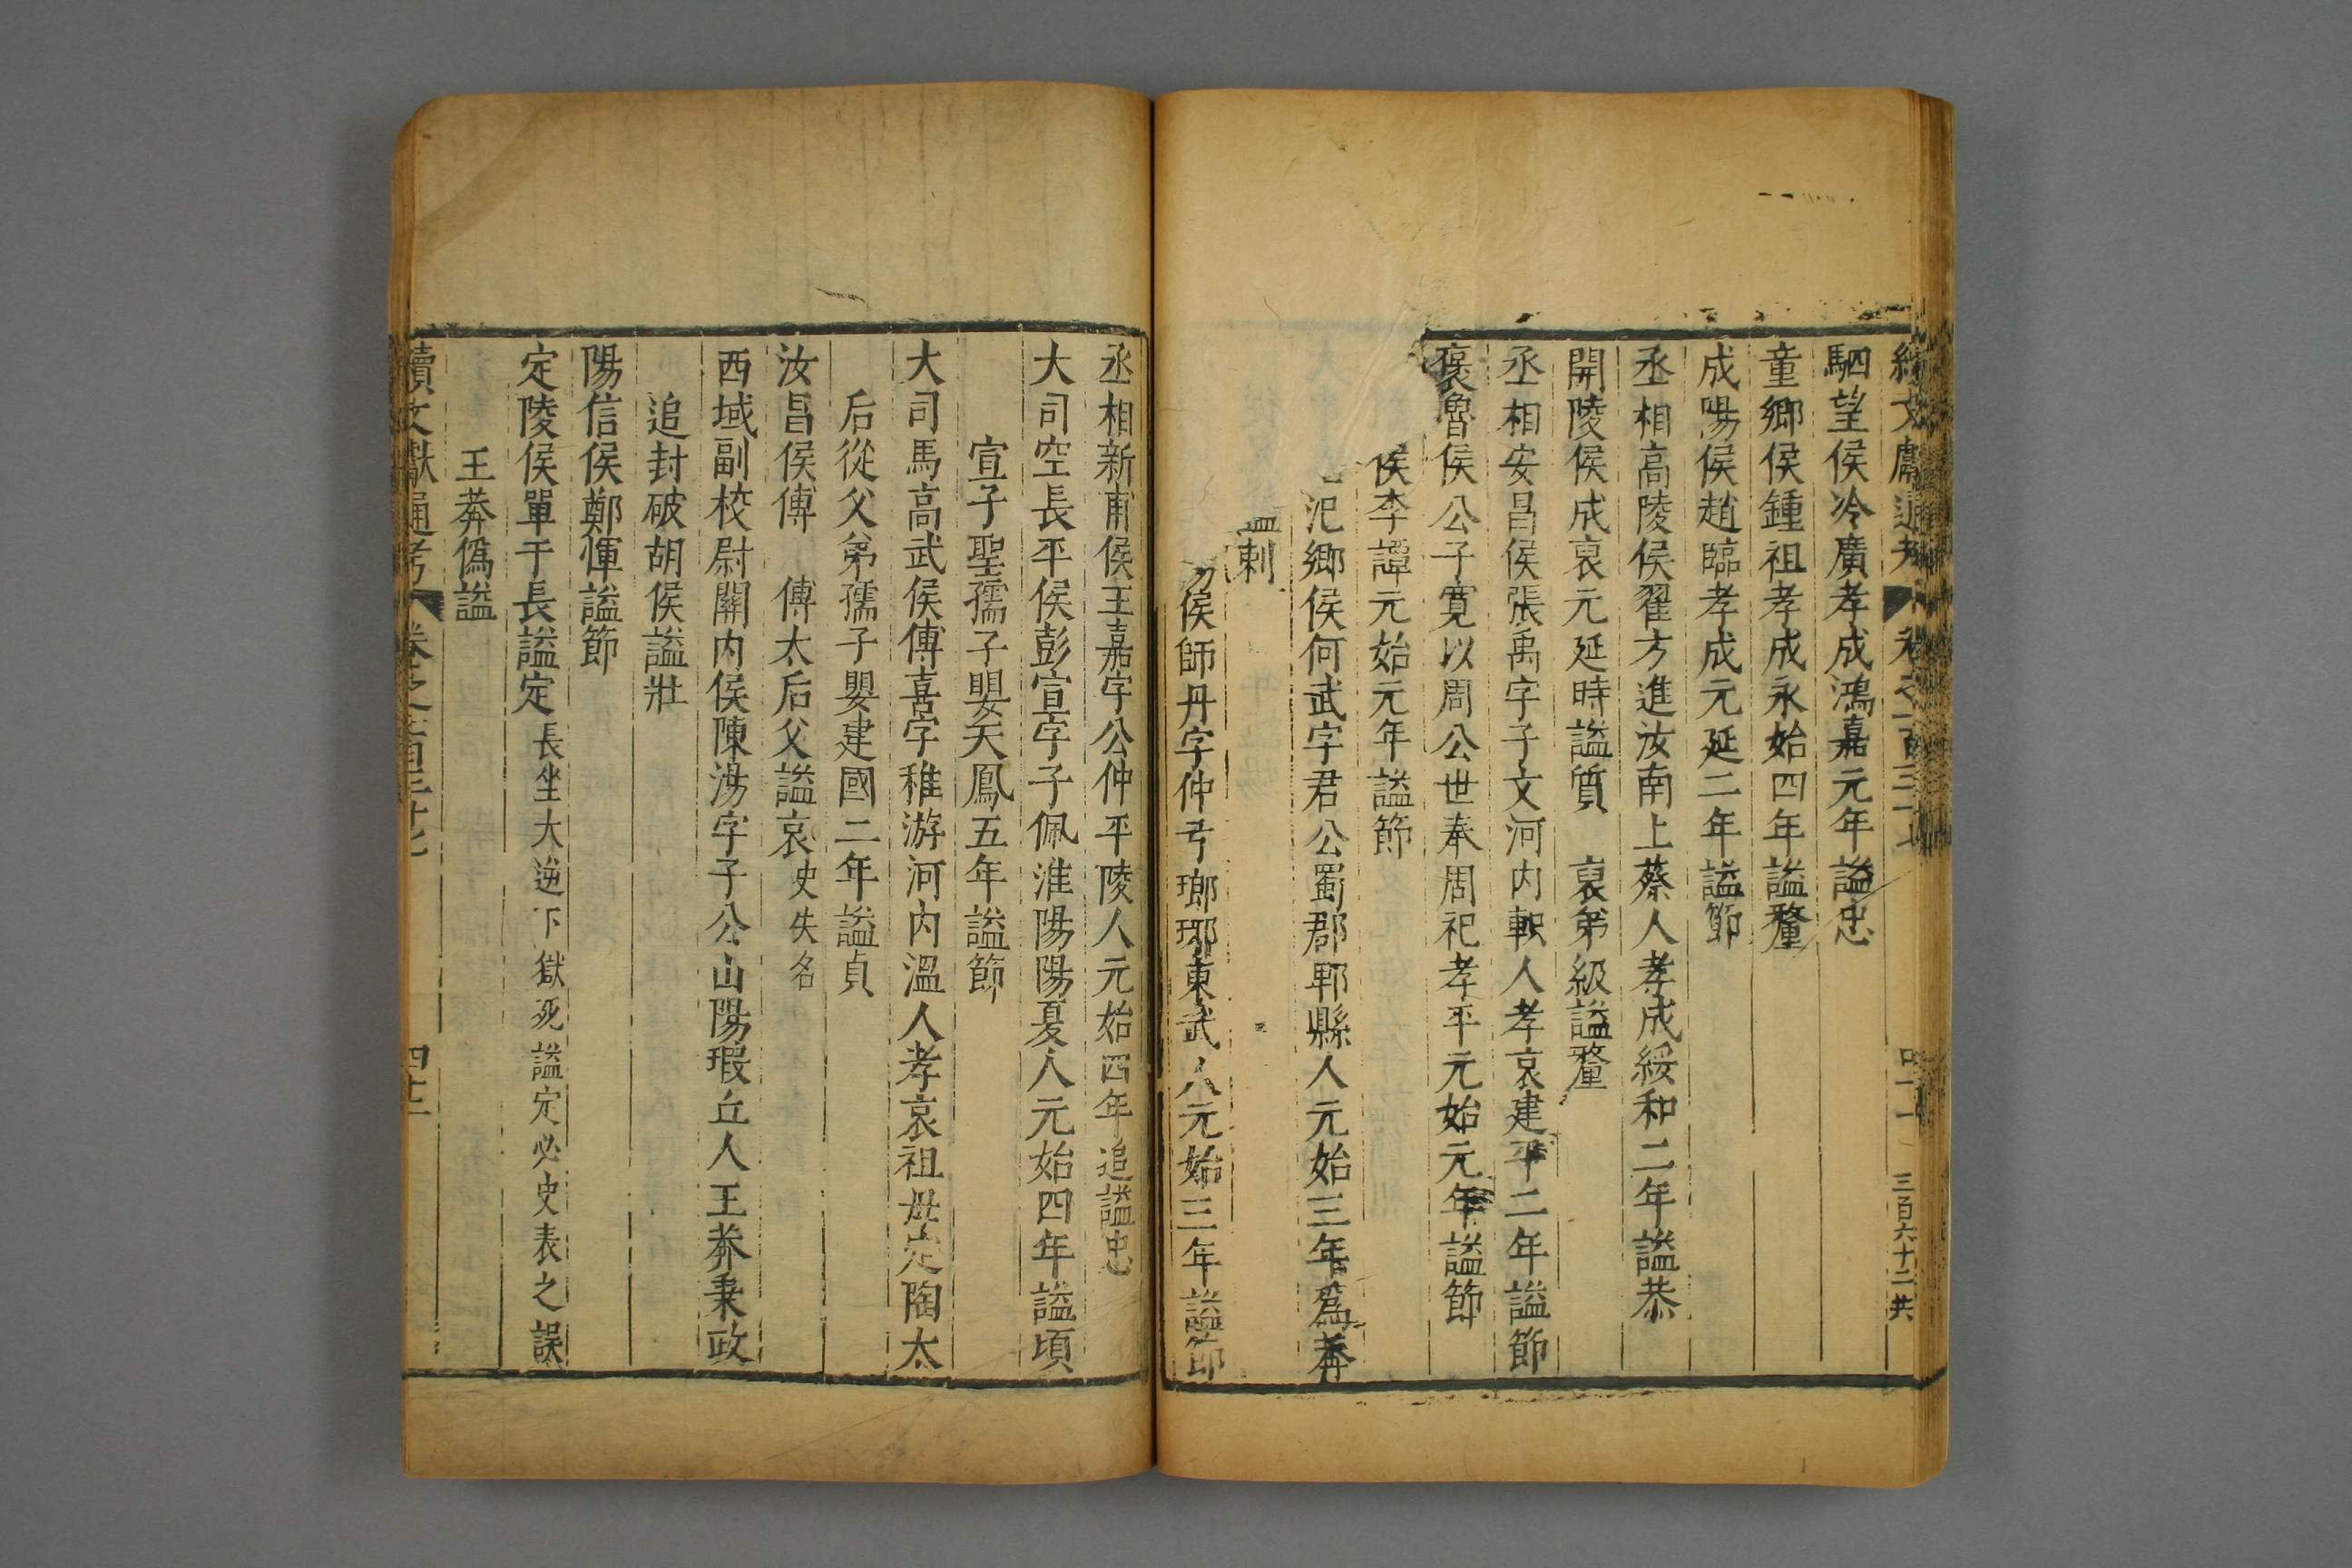 續文獻通考 卷之一百三十七 四十一 三百六十二共
駟望侯冷廣孝成鴻嘉元年謚忠
童鄉侯鍾祖孝成永始四年謚釐
成陽侯趙臨孝成元延二年謚節
丞相高陵侯翟方進汝南上蔡人孝成綏和二年謚恭
開陵侯成哀元延時謚質 哀弟級謚釐
丞相安昌侯張禹字子文河內軹人孝哀建平二年謚節
褒魯侯公子寬以周公世奉周祀孝平元始元年謚節
侯李譚元始元年謚節
氾鄉侯何武字君公蜀郡郫縣人元始三年為莽
謚剌
侯師丹字仲公瑯琊東武人元始三年謚節
丞相新甫侯王嘉字公仲平陵人元始四年追謚忠
大司空長平侯彭宣字子佩淮陽陽夏人元始四年謚頃
宣子聖孺子嬰天鳳五年謚節
大司馬高武侯傅喜字稚游河內溫人孝哀祖母定陶太
后從父弟孺子嬰建國二年謚貞
汝昌侯傅 傅太后父謚哀史失名
西域副校尉關內侯陳湯字子公山陽瑕丘人王莽秉政
追封破胡侯謚壯
陽信侯鄭惲謚節
定陵侯單于長謚定長坐大逆下獄死謚定必史表之誤
王莽偽謚
續文獻通考 卷之一百三十七 四十二